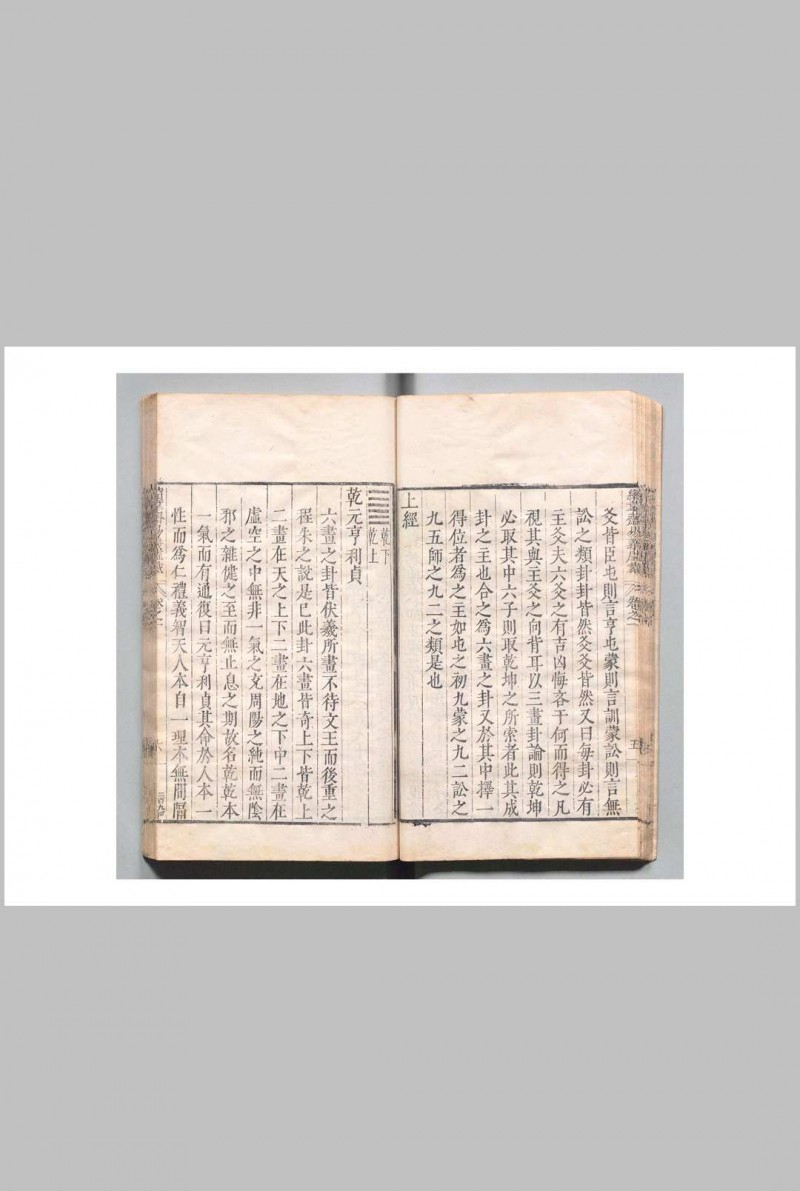 爻皆臣屯則言亨屯蒙則言訓蒙訟則言無
訟之類卦卦皆然爻爻皆然又曰每卦必有
主爻夫六爻之有吉凶悔吝于何而得之凡
視其與主爻之向背耳以三畫卦論則乾坤
必取其中六子則取乾坤之所索者此其成
卦之主也合之爲六畫之卦又於其中擇一
得位者爲之主如屯之初九蒙之九二訟之
九五師之九二之類是也
上經
乾下
乾上
乾元亨利貞
六畫之卦皆伏羲所畫不待文王而後重之
程朱之說是已此卦六畫皆奇上下皆乾上
二畫在天之上下二畫在地之下中二畫在
虛空之中無非一氣之充周陽之純而無陰
邪之雜健之至而無止息之期故名乾乾本
一氣而有通復曰元亨利貞其命於人本一
性而爲仁禮義智天人本自一理本無間隔
卷之一
五
卷之一
六